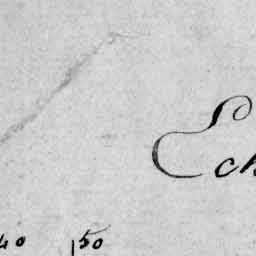 Ech
40 50